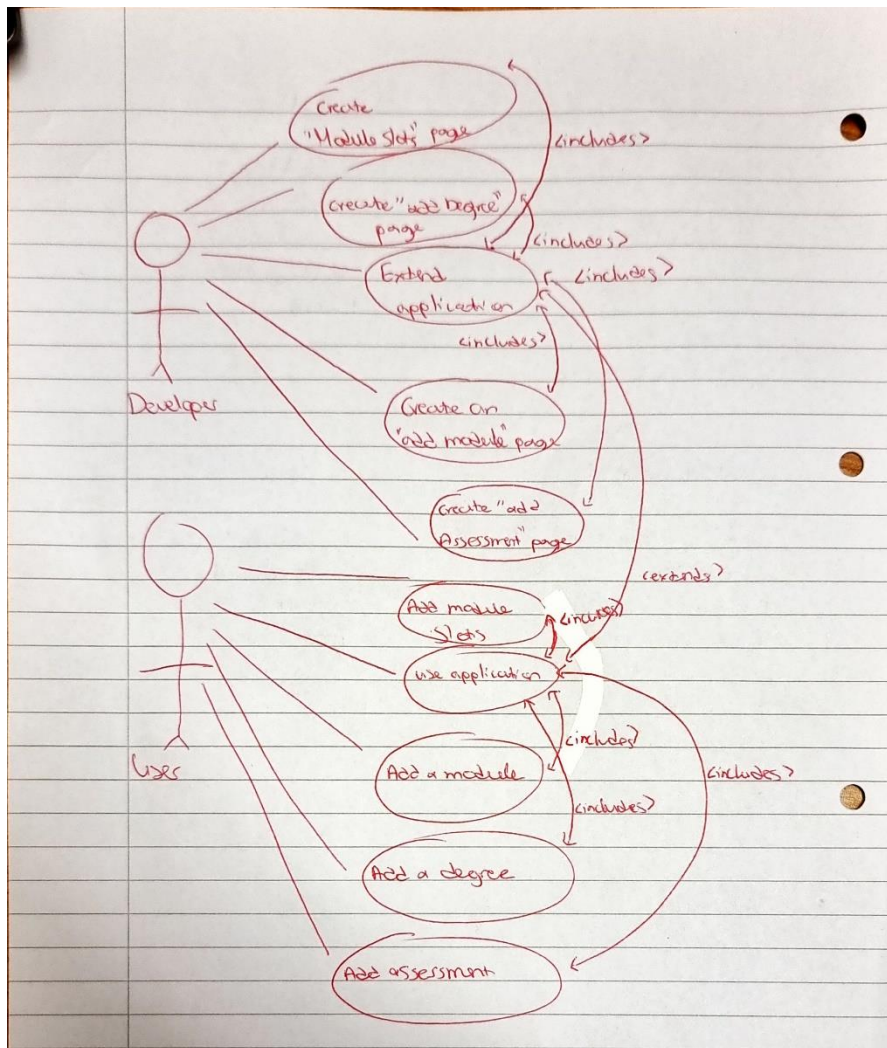 Create
"Module Slots" page
<includes>
Create "add Degree"
page
<includes>
Extend
application
<includes>
<includes>
Developer
Create an
"add module" page
Create "add
Assessment" page
<extends>
Add module
Slots
<includes>
use application
User
<includes>
Add a module
<includes>
<includes>
Add a degree
Add assessment